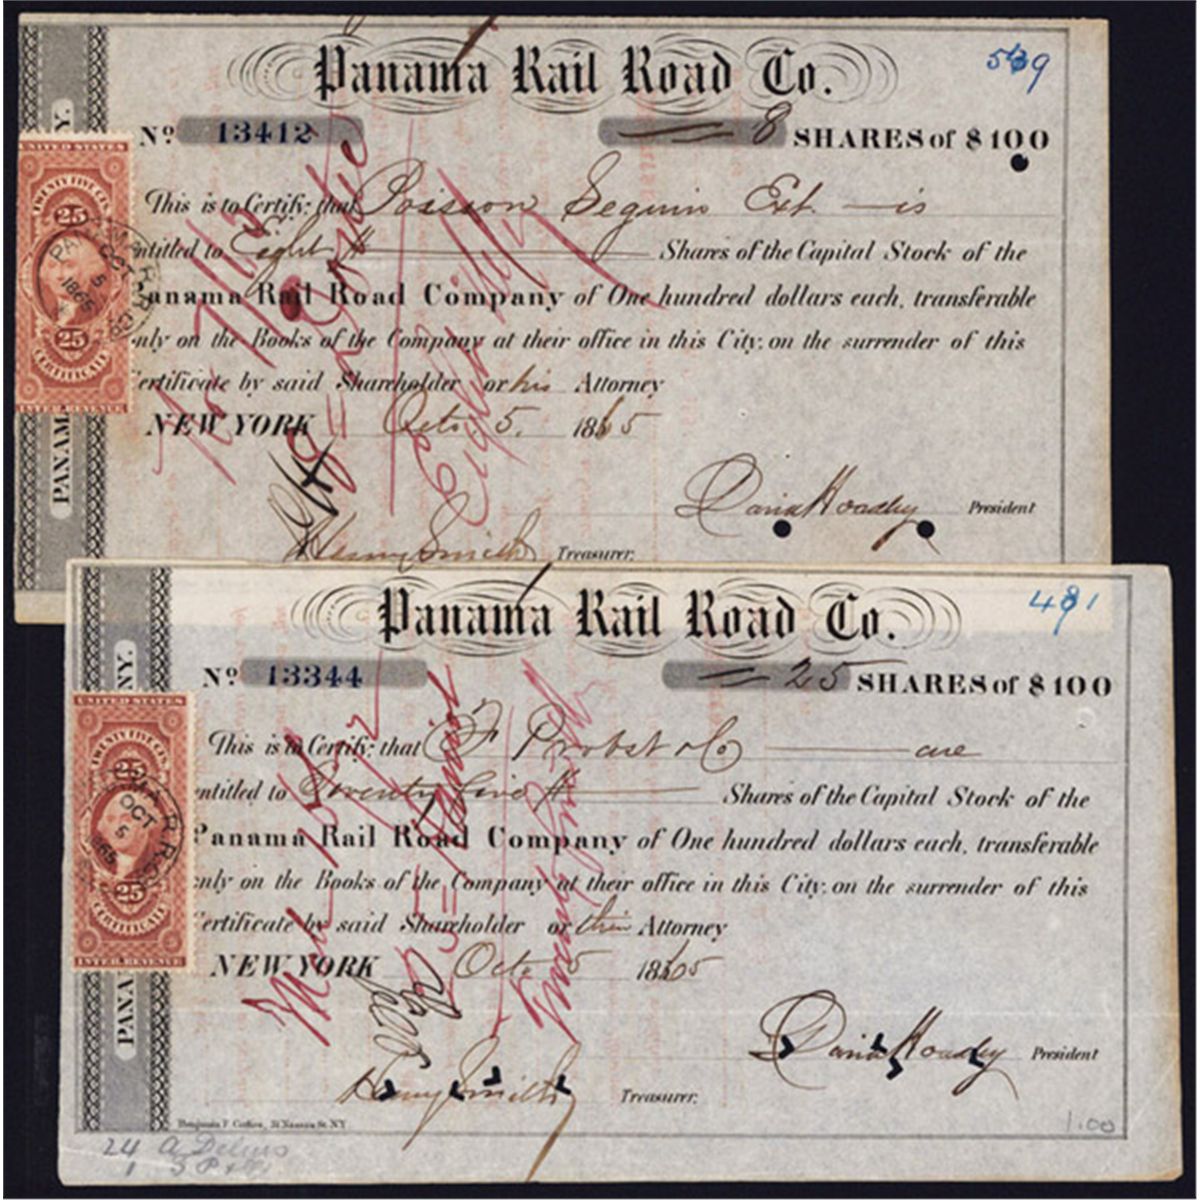 Panama Rail Road Co.
549
No 13412 8 SHARES of $100
This is to Certify, that Poisson Seguin Ext. is
entitled to Eight Shares of the Capital Stock of the
Panama Rail Road Company of One hundred dollars each, transferable
only on the Books of the Company at their office in this City, on the surrender of this
Certificate by said Shareholder or his Attorney
NEW YORK Octo 5. 1865
David Hoadley President
Henry Smith Treasurer.
PANAM
NY.
UNITED STATES
TWENTY FIVE CTS.
25
OCT
5
1865
25
CERTIFICATE
INTER. REVENUE
Eight
Panama Rail Road Co.
481
No 13344 25 SHARES of $100
This is to Certify, that F Probst & Co are
entitled to Twenty five Shares of the Capital Stock of the
Panama Rail Road Company of One hundred dollars each, transferable
only on the Books of the Company at their office in this City, on the surrender of this
Certificate by said Shareholder or their Attorney
NEW YORK Octo 5 1865
David Hoadley President
Henry Smith Treasurer.
PANA
NY.
UNITED STATES
TWENTY FIVE CTS.
25
OCT
5
1865
25
CERTIFICATE
INTER. REVENUE
25 =
Twenty five
Benjamin F Corlies, 31 Nassau St. NY
1.00
24
1